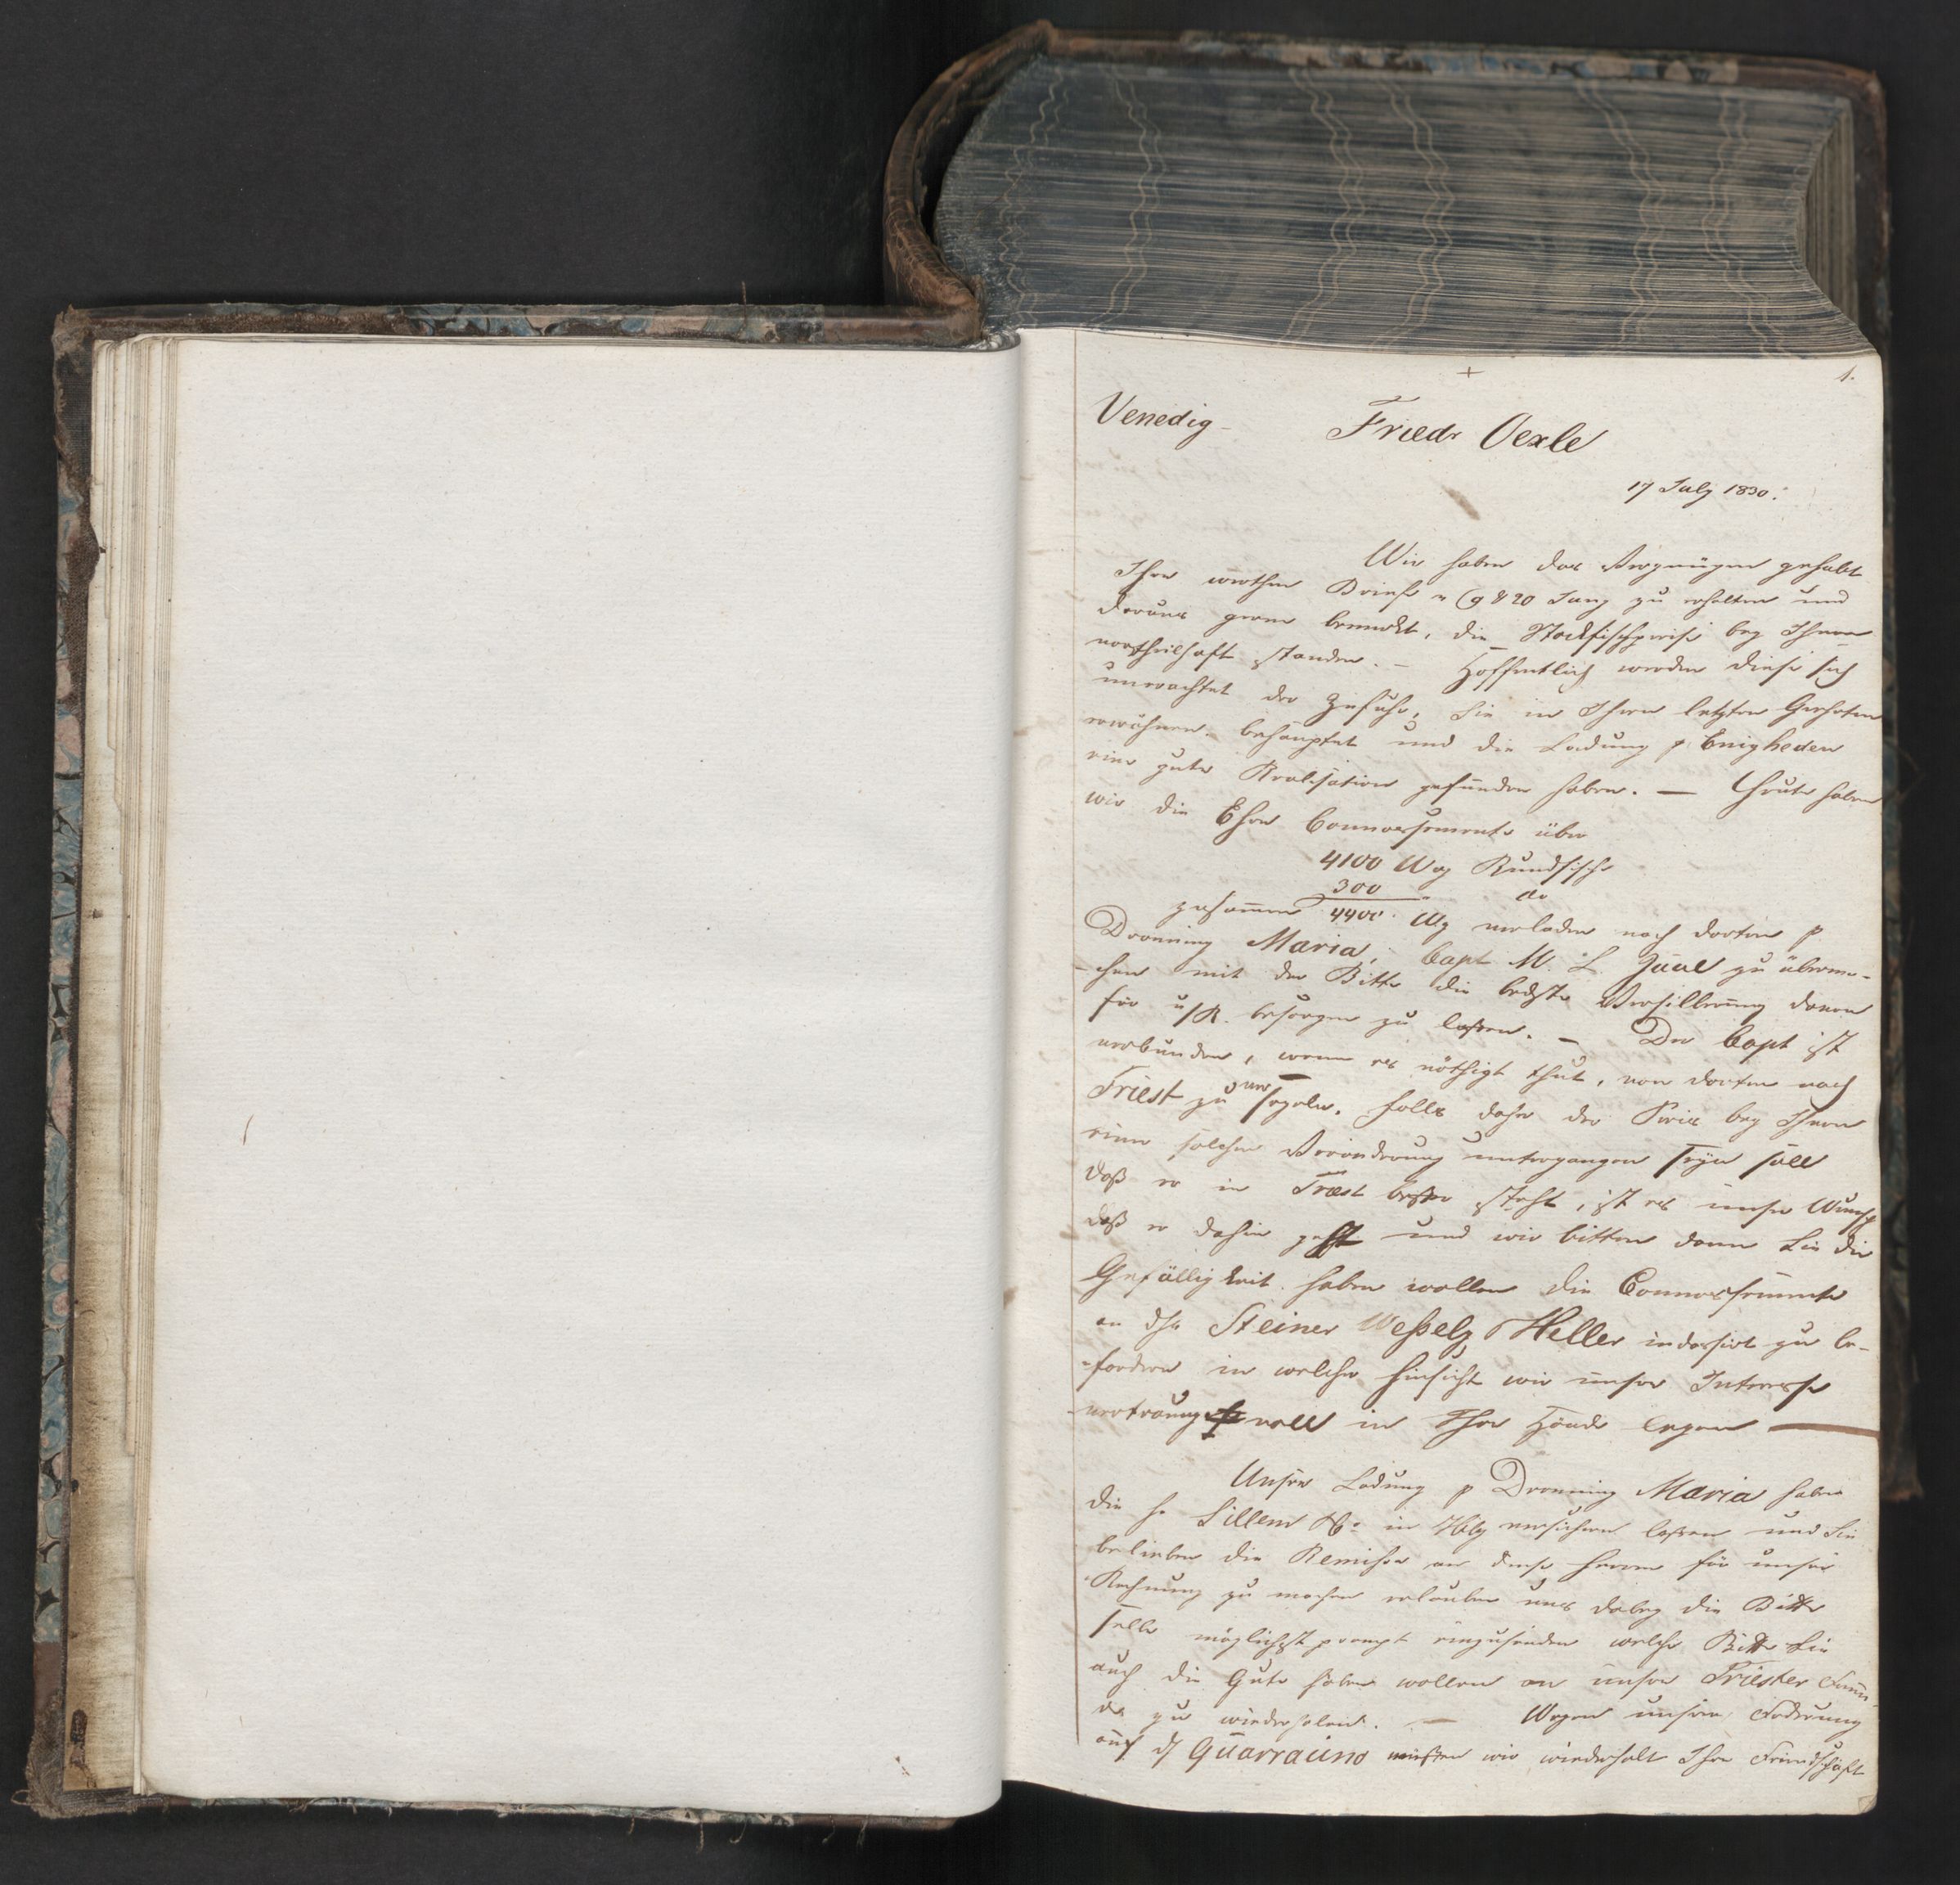 1.
Venedig – Friedr Oexle
17 July 1830.
Wir haben das Vergnügen gehabt
Ihre werthen Briefe 9 & 20 Juny zu erhalten und
daraus gerne bemerkt, die Stockfischpreise bey Ihnen
vortheilhaft standen. – Hoffentlich werden diese sich
unerachtet der Zufuhr, Sie in Ihrem letzten Geehrten
erwähnen behauptet und die Ladung p Enigheden
eine gute Realisation gefunden haben. — Heute haben
wir die Ehre Connossemente über
4100 Wog Rundfische
300 do
zusamen 4400 Wog verladen nach dorten p
Dronning Maria, Capt M. L. Juul zu überma-
-chen mit der Bitte die beste Versilberung davon
für u/R. besorgen zu lassen. – Der Capt ist
verbunden, wenn es nöthigt thut, von dorten nach
Triest zu versegeln, falls daher der Preis bey Ihnen
eine solche Veränderung untergangen seyn soll
daß er in Triest besser steht, ist es unser Wunsch
daß er dahin geht und wir bitten dann Sie die
Gefälligkeit haben wollen die Connossemente
an die Steiner Weßely Heller indossirt zu be-
-fordern in welcher Hinsicht wir unser Interesse
vertrauungsvoll in Ihre Hände legen —
Unsere Ladung p Dronning Maria haben
die H. Sillem & Co in Hbg versichern lassen und Sie
belieben die Remisen an diese Herren für unsere
Rechnung zu machen erlauben uns dabey die Bitte
selbe möglichst prompt einzusenden welche Bitte Sie
auch die Güte haben wollen an unsere Triester Freun-
de zu wiederholen. — Wegen unsere Foderung
auf d/ Quarrauno müssen wir wiederholt Ihre Freundschaft